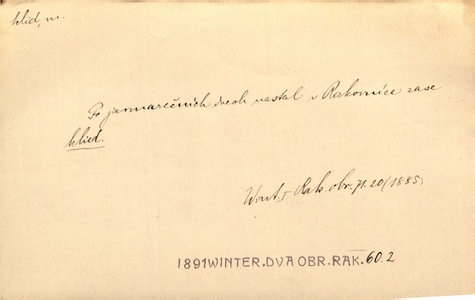 klid, m.
Po jarmarečních dnech nastal v Rakovníce zase
klid.
Wint. Rak. obr. 71.20 (1885)
1891WINTER, DVA OBR. RAK. 60.2